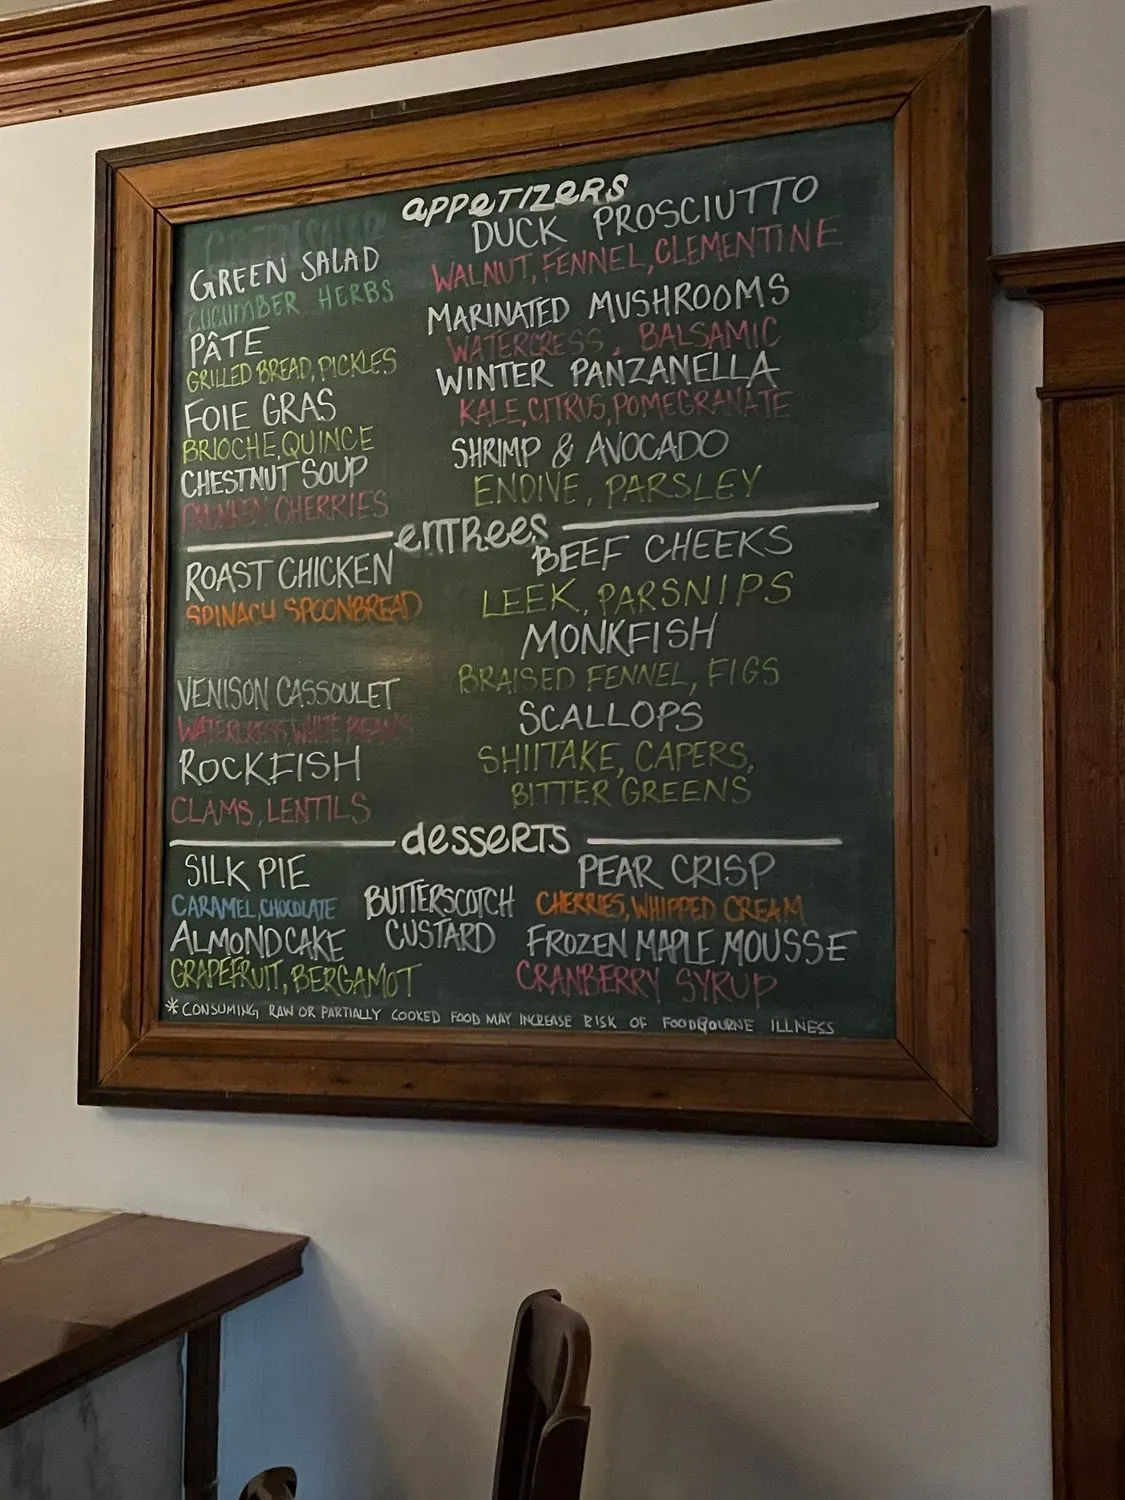 appetizers
GREEN SALAD
CUCUMBER, HERBS
PÂTE
GRILLED BREAD, PICKLES
FOIE GRAS
BRIOCHE, QUINCE
CHESTNUT SOUP
CHERRIES
DUCK PROSCIUTTO
WALNUT, FENNEL, CLEMENTINE
MARINATED MUSHROOMS
WATERCRESS, BALSAMIC
WINTER PANZANELLA
KALE, CITRUS, POMEGRANATE
SHRIMP & AVOCADO
ENDIVE, PARSLEY
entrees
ROAST CHICKEN
SPINACH SPOONBREAD
VENISON CASSOULET
WATERCRESS WHITE BEANS
ROCKFISH
CLAMS, LENTILS
BEEF CHEEKS
LEEK, PARSNIPS
MONKFISH
BRAISED FENNEL, FIGS
SCALLOPS
SHIITAKE, CAPERS,
BITTER GREENS
desserts
SILK PIE
CARAMEL, CHOCOLATE
ALMOND CAKE
GRAPEFRUIT, BERGAMOT
BUTTERSCOTCH
CUSTARD
PEAR CRISP
CHERRIES, WHIPPED CREAM
FROZEN MAPLE MOUSSE
CRANBERRY SYRUP
* CONSUMING RAW OR PARTIALLY COOKED FOOD MAY INCREASE RISK OF FOODBOURNE ILLNESS